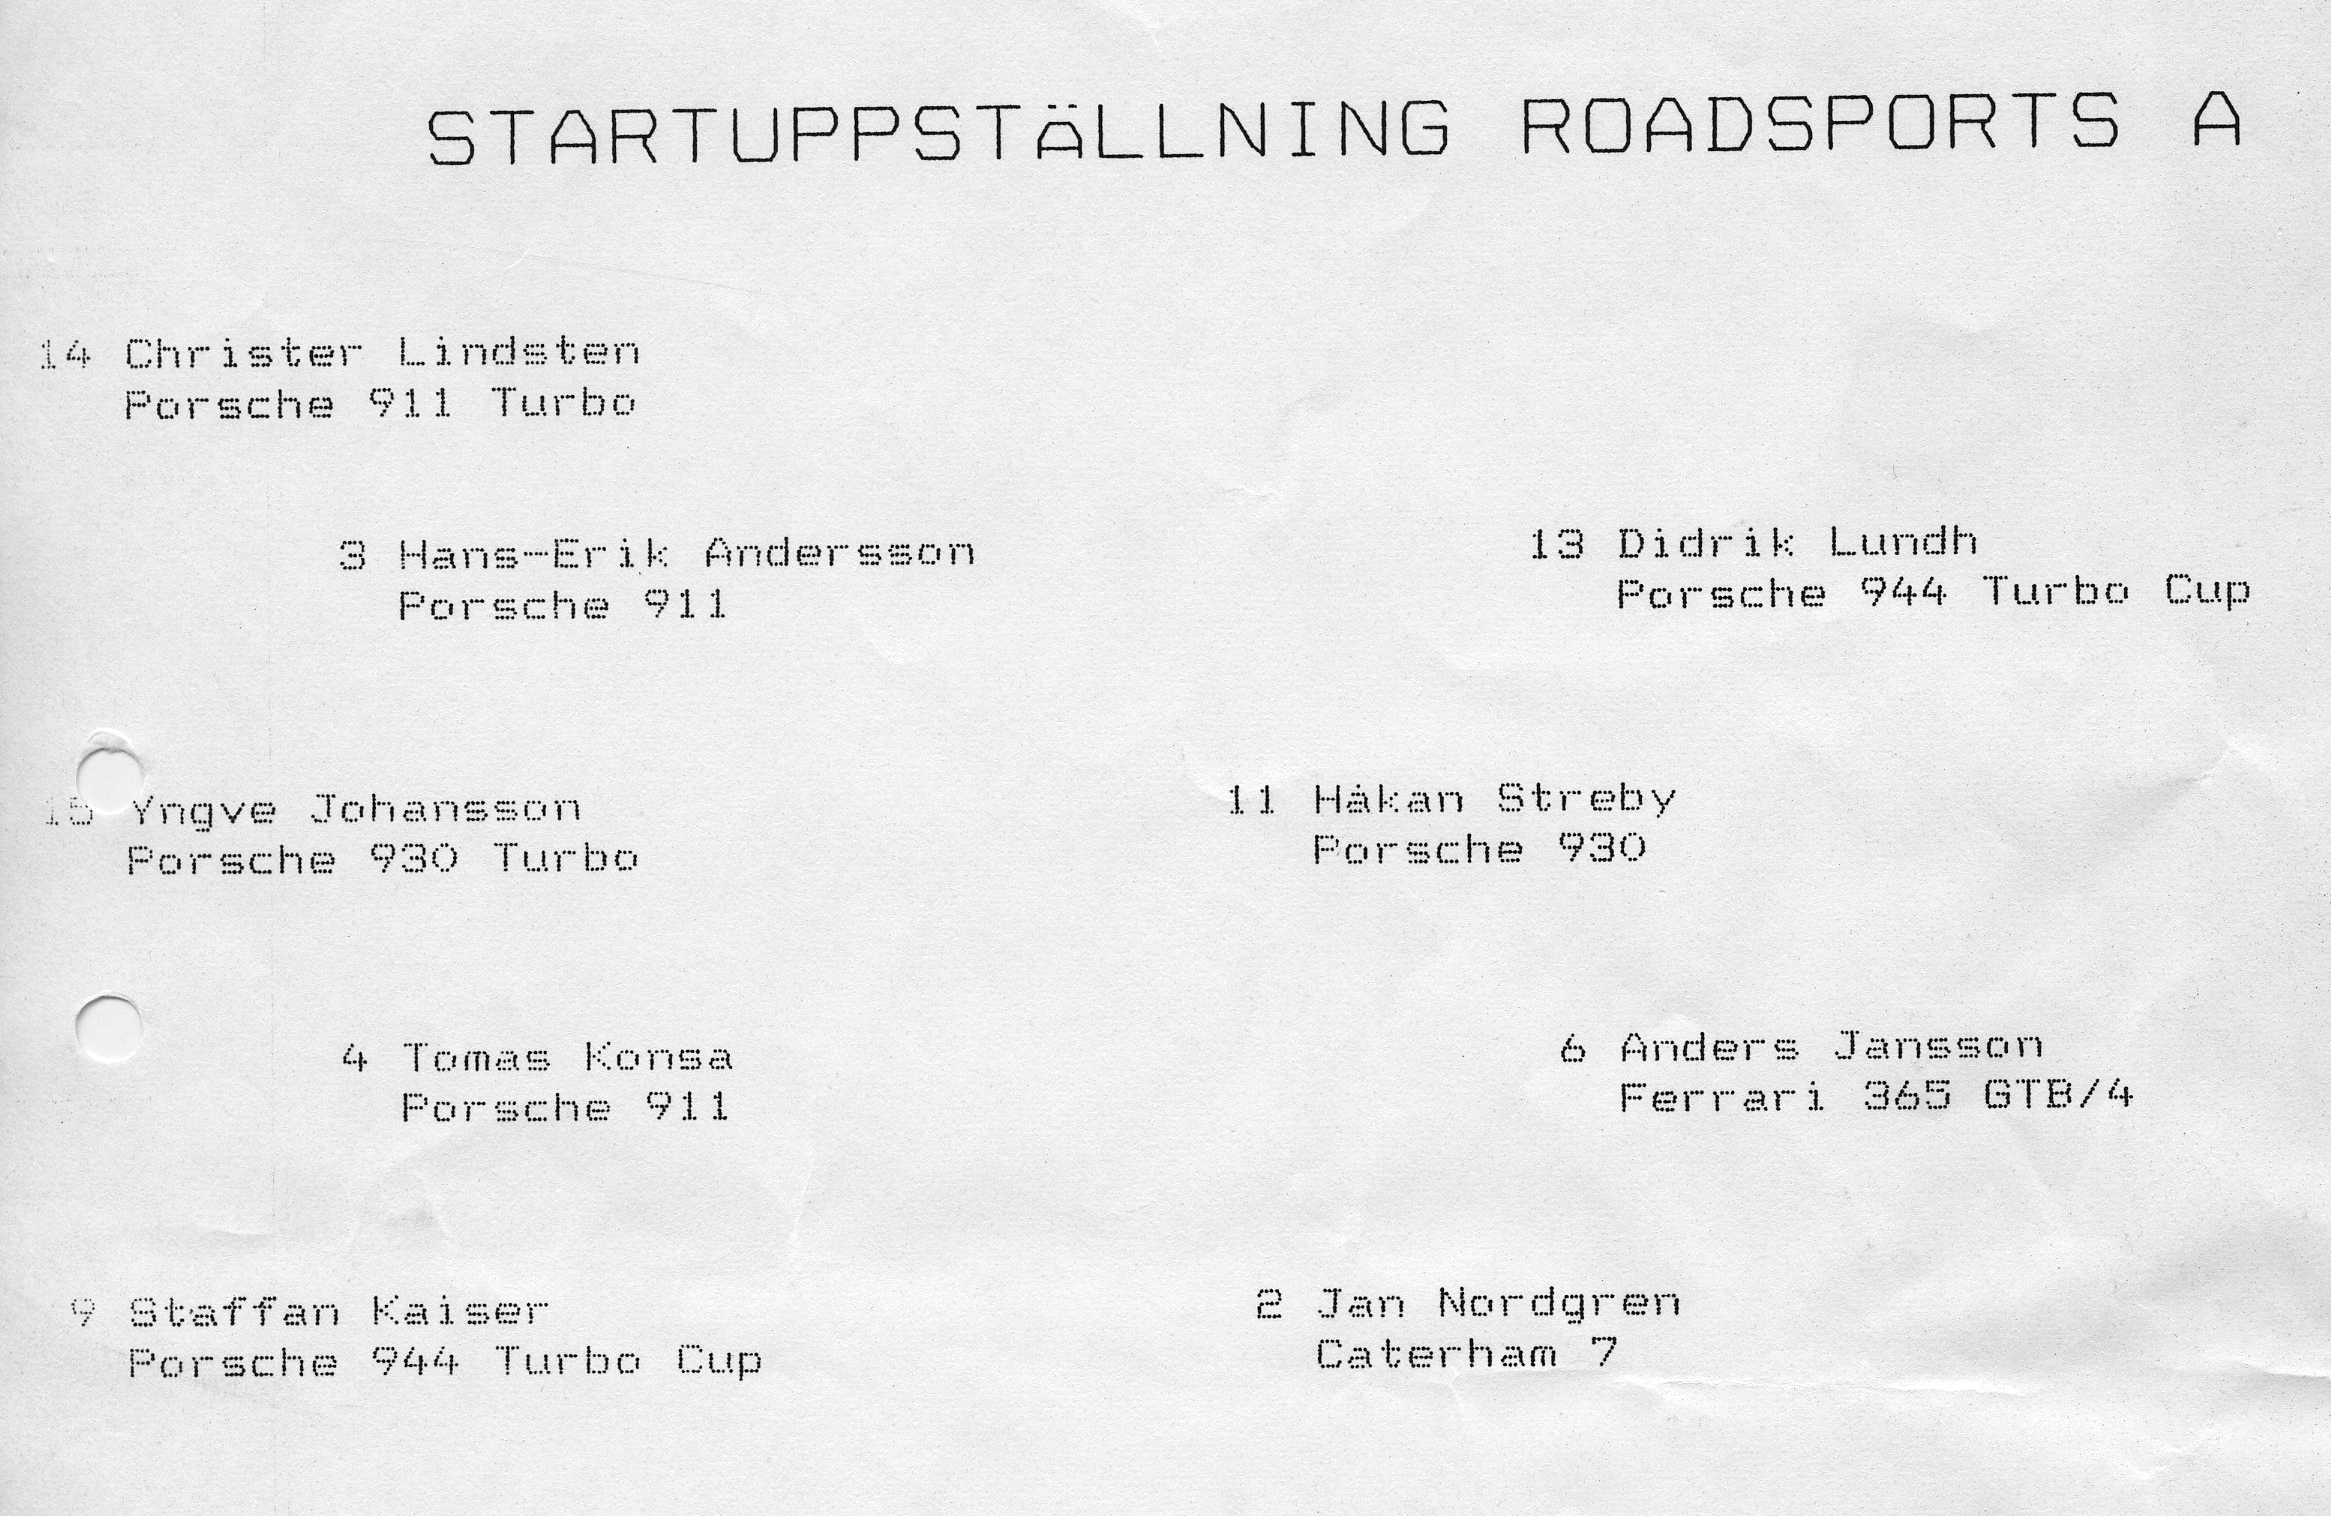 STARTUPPSTÄLLNING ROADSPORTS A
14 Christer Lindsten
Porsche 911 Turbo
3 Hans-Erik Andersson
Porsche 911
13 Didrik Lundh
Porsche 944 Turbo Cup
15 Yngve Johansson
Porsche 930 Turbo
11 Håkan Streby
Porsche 930
4 Tomas Konsa
Porsche 911
6 Anders Jansson
Ferrari 365 GTB/4
9 Staffan Kaiser
Porsche 944 Turbo Cup
2 Jan Nordgren
Caterham 7